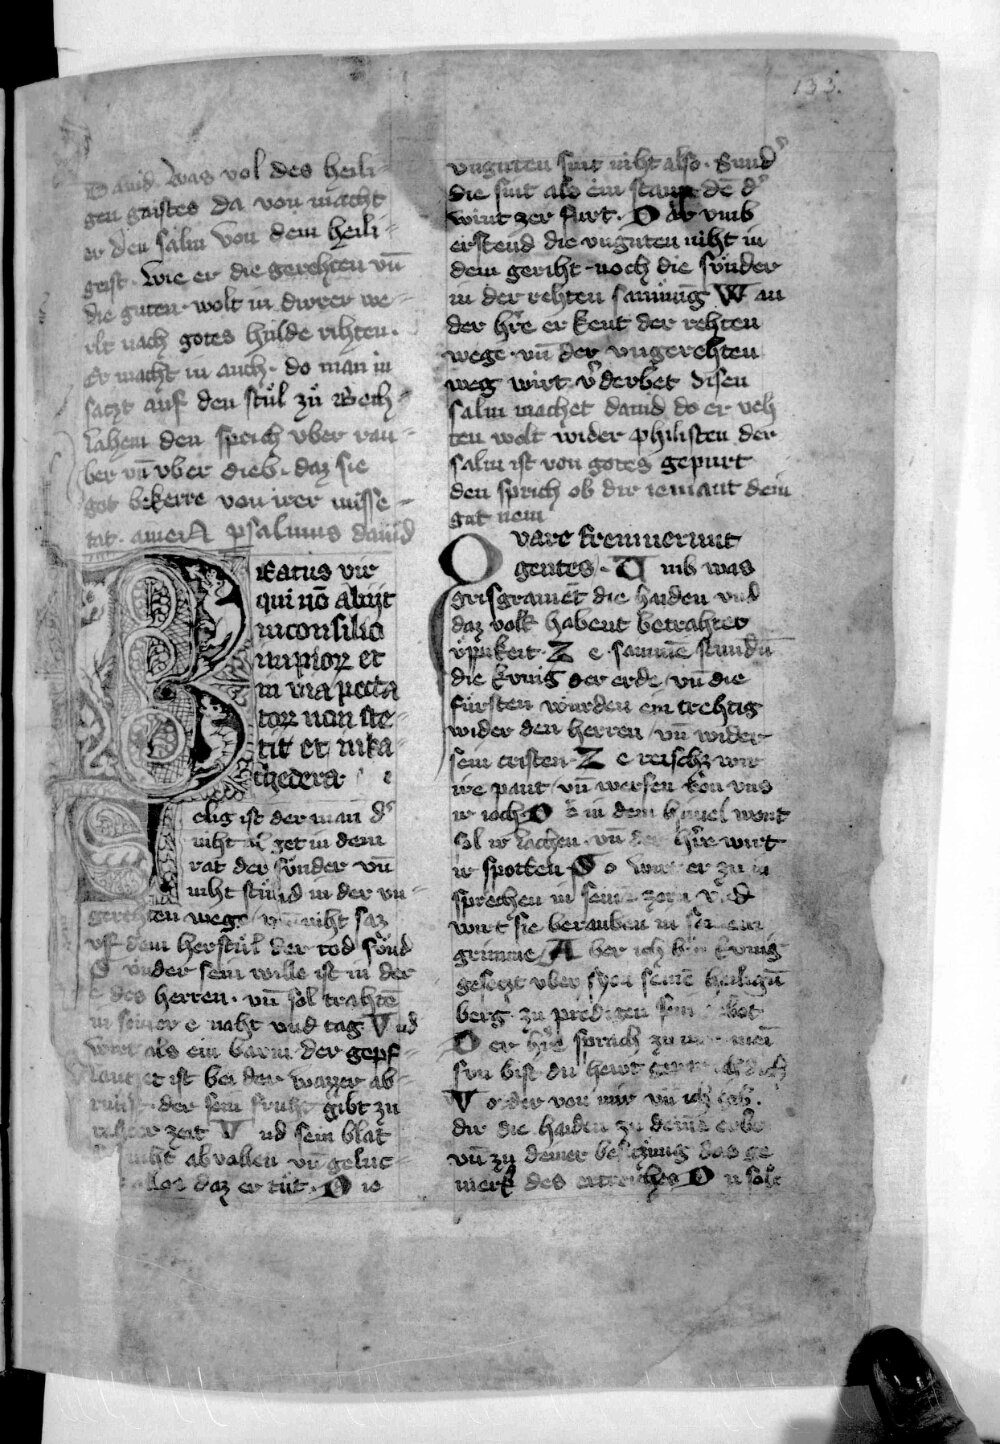 133.
Dauid. was vol des heili-
gen gaistes da von macht
er den salm von dem heili-
geist. wie er die gerehten vn̄
die guten wolt in dirrer we-
rlt nach gotes hulde rihten.
Er macht in auch. do man in
saczt auf den stůl zů Bech-
lahem den sprich vber rau-
ber vn̄ vber dieb. daz sie
got bekerre von irer misse-
tat. ameN psalmus dauid
Beatus vir
qui nō abijt
in consilio
impiorꝝ et
in via pecca
torꝝ non ste-
tit et in ka-
thedera
Selig ist der man dˢ
niht get in dem
rat der sünder vn̄
niht stund in der vn-
gerehten wege niht saz
vf dem herstůl der tod sünd
S under sein wille ist in der
e des herren. vn̄ sol trahtē
in seiner e naht vnd tag V nd
wirt als ein baum der gepf-
lantzet ist bei den wazzer ab-
runst. der sein fruht gibt zu
rehter zeit V nd sein blat
niht abvallen vn̄ geluc-
alles daz er tůt. D ie
vnguten sint niht also. Sundˢ
die sint als ein staup dē dˢ
wint zer furt. D ar vmb
erstend die vnguten niht in
dem geriht noch die sünder
in der rehten samnūg W an
der hˢre er kent der rehten
wege. vn̄ der vngerehten
weg wirt vˢderbet Disen
salm machet dauid do er veh
ten wolt wider philisten der
salm ist von gotes gepurt
den sprich ob dir iemant dein
gut nem
Q vare fremuerunt
gentes. U mb was
grisgramet die haiden vnd
daz volk habent betrahtet
üppikeit. Z e samnē stundū
die kunig der erde vn̄ die
fürsten würden ein trehtig
wider den herren vn̄ wider
sein cristen. Z e reischz wir
ire pant vn̄ werfen von vns
ir ioch. D in dem himel wont
sol ir lachen. vn̄ der hˢre wirt
ir spotten S o wirt er zu in
sprechen in seinē zorn vnd
wirt sie berauben in seinem
grimme A ber ich bin kunig
gesetzt vber syon seinē heiligū
berg. zu predigen sein gebot
D er hˢre sprach zu mir mein
sun bist du hewt
V order von mir vn̄ ich gib.
dir die haiden zu deinē erbe
vn̄ zu deiner besiczung das ge
merk des ertreiches D u solt